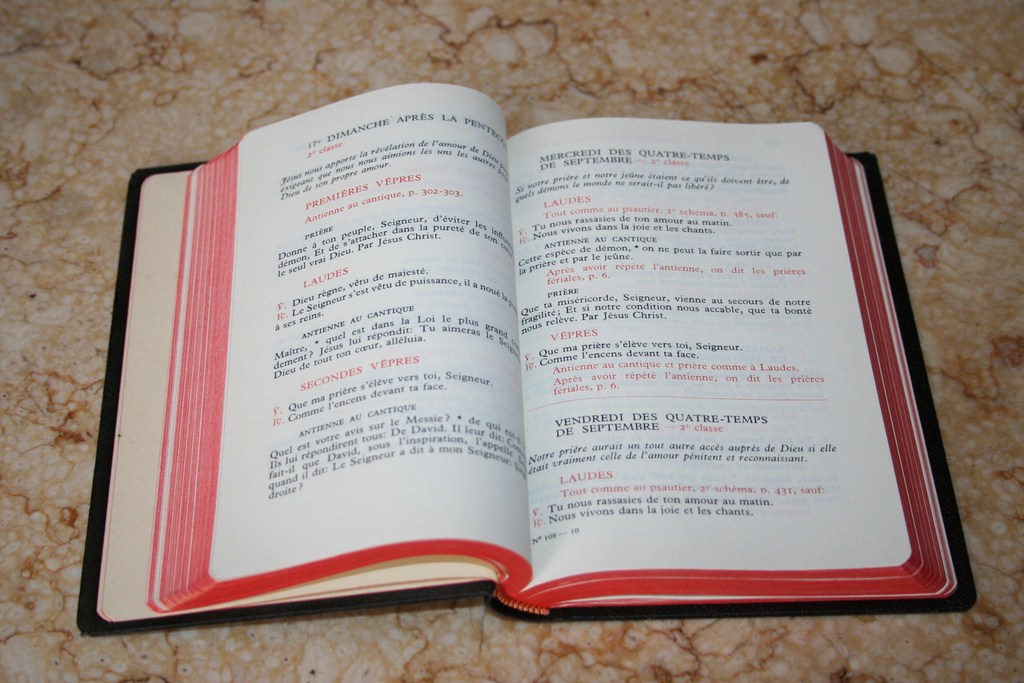 17e DIMANCHE APRÈS LA
2e classe
Jésus nous apporte la révélation de l'amour de Dieu
exigeant que nous nous aimions les uns les autres
Dieu de son propre amour.
PREMIÈRES VÊPRES
Antienne au cantique, p. 302-303.
PRIÈRE
Donne à ton peuple, Seigneur, d'éviter les
démon, Et de s'attacher dans la pureté de son
le seul vrai Dieu. Par Jésus Christ.
LAUDES
℣. Dieu règne, vêtu de majesté.
℟. Le Seigneur s'est vêtu de puissance, il a noué la
à ses reins.
ANTIENNE AU CANTIQUE
Maître, * quel est dans la Loi le plus grand
dement? Jésus lui répondit: Tu aimeras le
Dieu de tout ton cœur, alléluia.
SECONDES VÊPRES
℣. Que ma prière s'élève vers toi, Seigneur.
℟. Comme l'encens devant ta face.
ANTIENNE AU CANTIQUE
Quel est votre avis sur le Messie? * de qui
Ils lui répondirent tous: De David. Il leur dit:
fait-il que David, sous l'inspiration, l'appelle
quand il dit: Le Seigneur a dit à mon Seigneur:
droite?
MERCREDI DES QUATRE-TEMPS
DE SEPTEMBRE — 2e classe
Si notre prière et notre jeûne étaient ce qu'ils doivent être, de
quels démons le monde ne serait-il pas libéré?
LAUDES
Tout comme au psautier, 2e schéma, p. 385, sauf:
℣. Tu nous rassasies de ton amour au matin.
℟. Nous vivons dans la joie et les chants.
ANTIENNE AU CANTIQUE
Cette espèce de démon, * on ne peut la faire sortir que par
la prière et par le jeûne.
Après avoir répété l'antienne, on dit les prières
fériales, p. 6.
PRIÈRE
Que ta miséricorde, Seigneur, vienne au secours de notre
fragilité; Et si notre condition nous accable, que ta bonté
nous relève. Par Jésus Christ.
VÊPRES
℣. Que ma prière s'élève vers toi, Seigneur.
℟. Comme l'encens devant ta face.
Antienne au cantique et prière comme à Laudes.
Après avoir répété l'antienne, on dit les prières
fériales, p. 6.
VENDREDI DES QUATRE-TEMPS
DE SEPTEMBRE — 2e classe
Notre prière aurait un tout autre accès auprès de Dieu si elle
était vraiment celle de l'amour pénitent et reconnaissant.
LAUDES
Tout comme au psautier, 2e schéma, p. 431, sauf:
℣. Tu nous rassasies de ton amour au matin.
℟. Nous vivons dans la joie et les chants.
N° 108 — 10